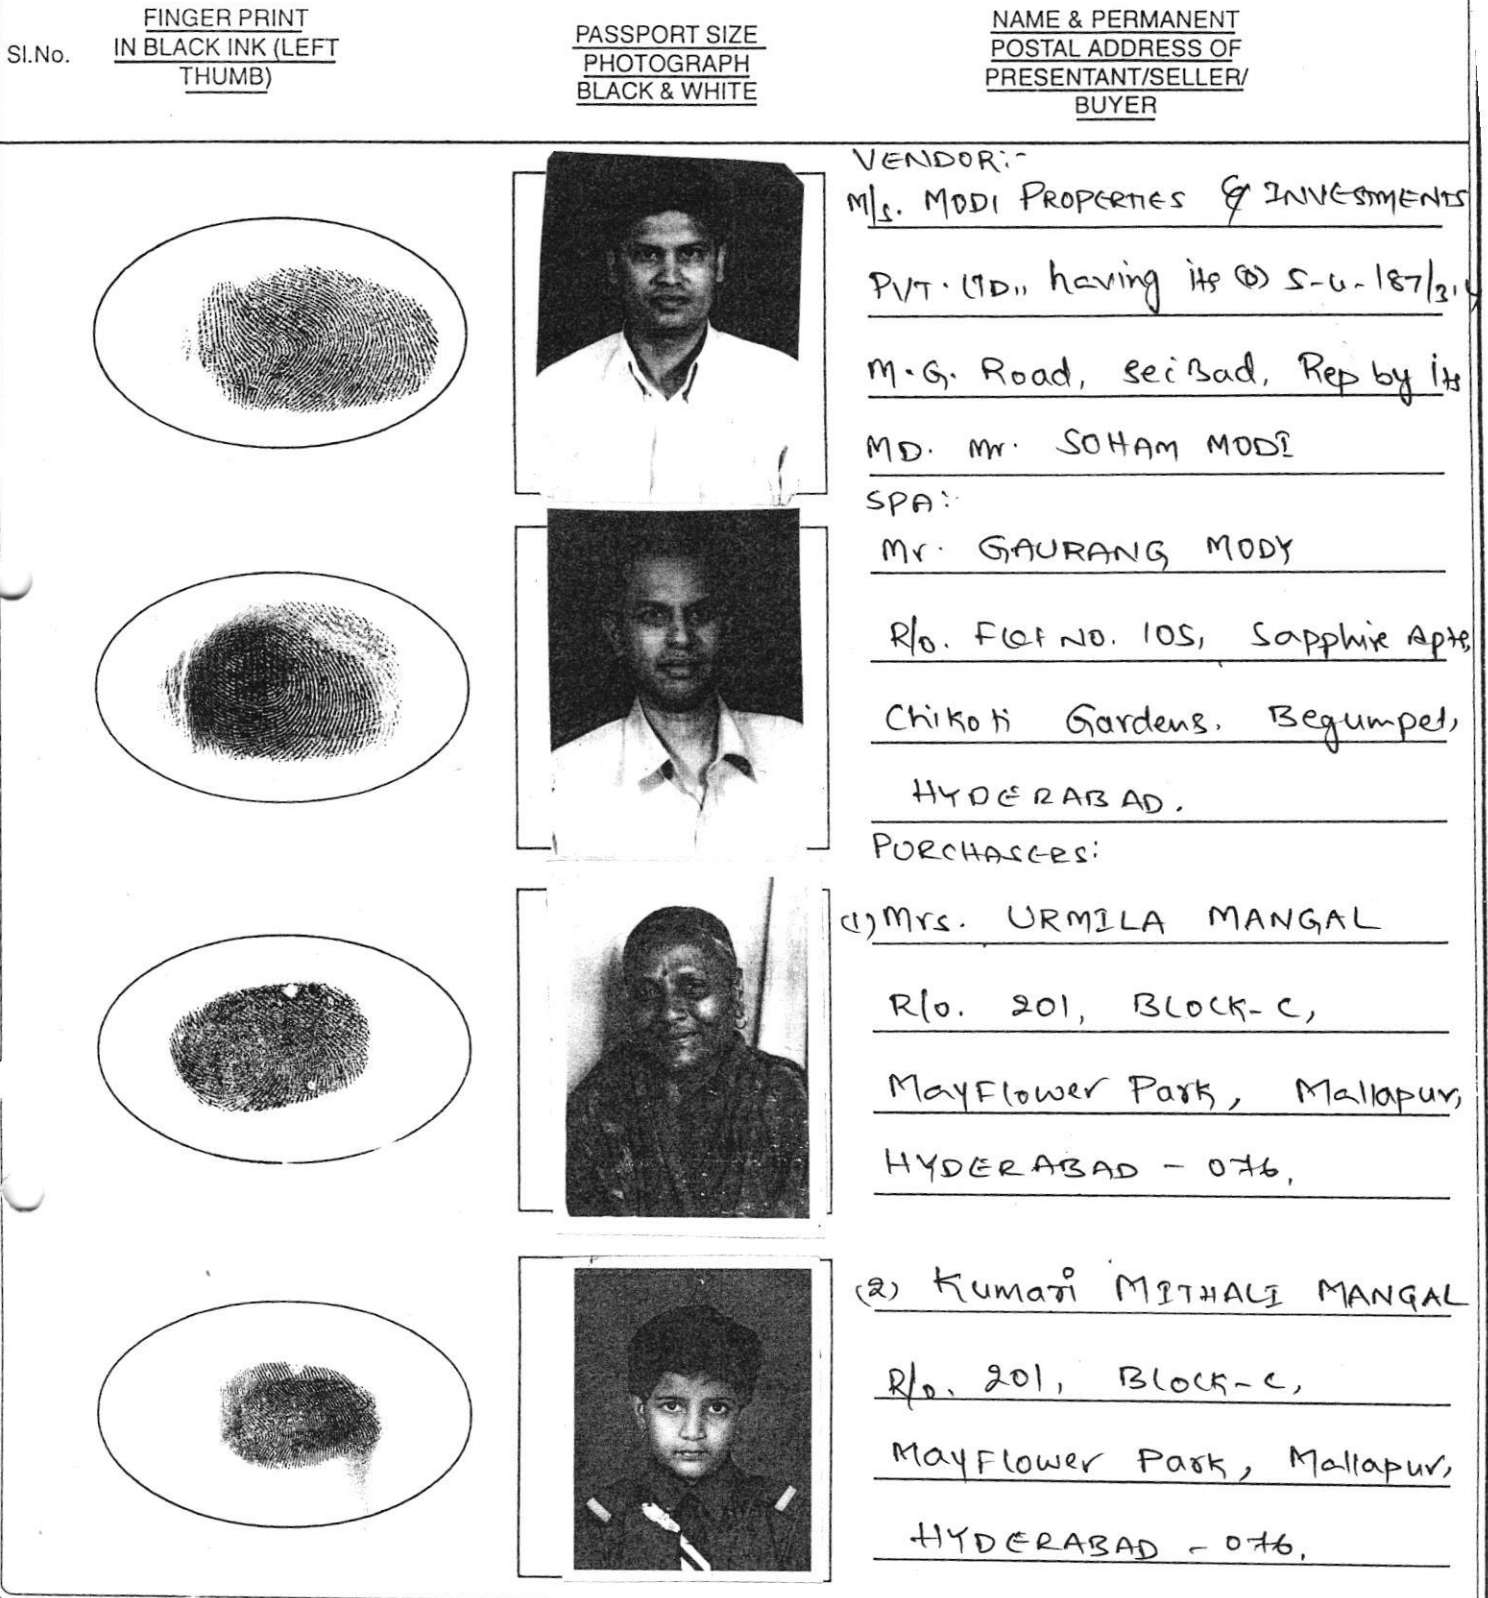 Sl.No.
FINGER PRINT
IN BLACK INK (LEFT
THUMB)
PASSPORT SIZE
PHOTOGRAPH
BLACK & WHITE
NAME & PERMANENT
POSTAL ADDRESS OF
PRESENTANT/SELLER/
BUYER
VENDOR:-
M/s. MODI PROPERTIES & INVESTMENTS
PVT. LTD., having its (O) 5-4-187/3,4
M.G. Road, Sec'Bad, Rep by its
MD. Mr. SOHAM MODI
SPA:-
Mr. GAURANG MODY
R/o. Flat No. 105, Sapphire Apts,
Chikoti Gardens, Begumpet,
HYDERABAD.
PURCHASERS:
(1) Mrs. URMILA MANGAL
R/o. 201, BLOCK-C,
MayFlower Park, Mallapur,
HYDERABAD - 076.
(2) Kumari MITHALI MANGAL
R/o. 201, BLOCK-C,
MayFlower Park, Mallapur,
HYDERABAD - 076.